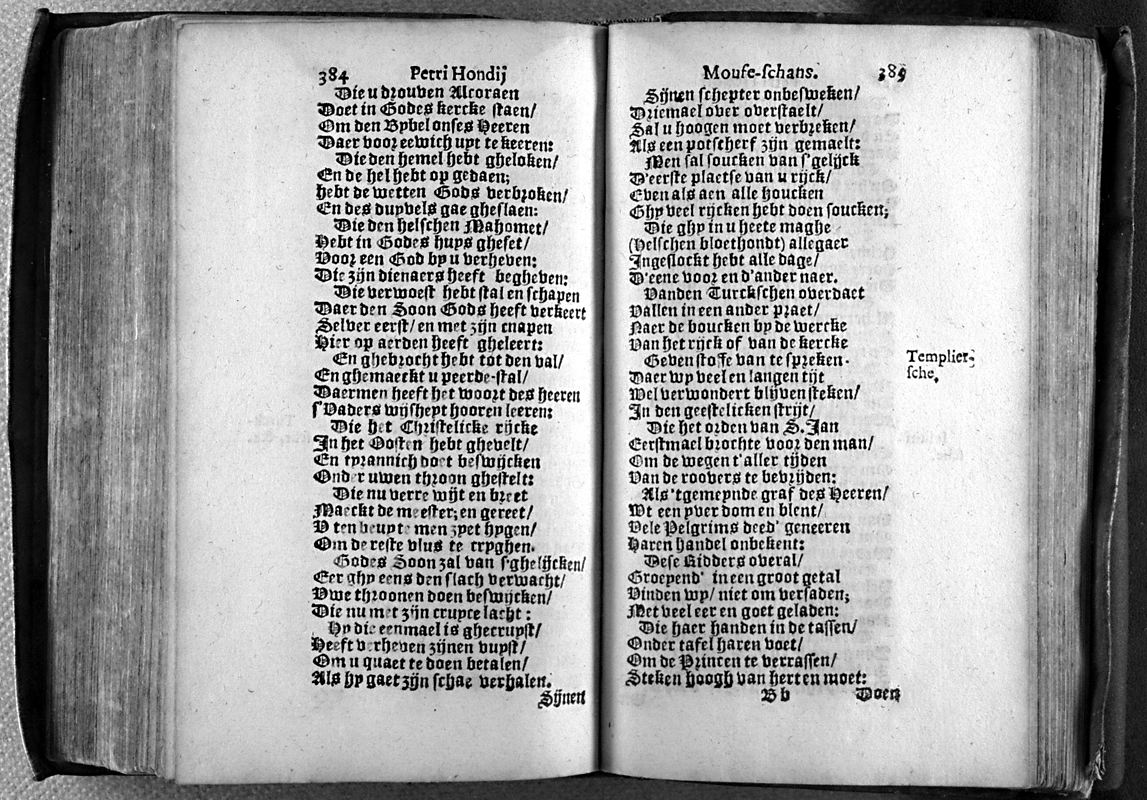 384 Petri Hondij
Die u drouven Alcoraen
Doet in Godes kercke staen/
Om den Bybel onses Heeren
Daer voor eewich uyt te keeren:
Die den hemel hebt gheloken/
En de hel hebt op gedaen;
hebt de wetten Gods verbroken/
En des duyvels gae gheslaen:
Die den helschen Mahomet/
Hebt in Godes huys gheset/
Voor een God by u verheven:
Die zijn dienaers heeft begheven:
Die verwoest hebt stal en schapen
Daer den Soon Gods heeft verkeert
Selver eerst/ en met zijn cnapen
Hier op aerden heeft geleert:
En ghebrocht hebt tot den val/
En ghemaeckt u peerde-stal/
Daermen heeft het woort des heeren
s'Vaders wijshept hooren leeren:
Die het Christelicke rijcke
In het Oosten hebt ghevelt/
En tyrannich doet beswijcken
Onder uwen throon ghestelt:
Die nu verre wijt en breet
Maeckt de meester; en gereet/
Om de reste vlus te cryghen.
Godes Soon zal van s'ghelijcken/
Eer ghy eens den slach verwacht/
Vwe throonen doen beswijcken/
Die nu met zijn cruyce lacht:
Hy die eenmael is ghecruyst/
Heeft verheven zijnen vuyst/
Om u quaet te doen betalen/
Als hy gaet zijn schae verhalen.
Sijnen
Moufe-schans. 385
Sijnen schepter onbesweken/
Driemael over overstaelt/
Sal u hoogen moet verbreken/
Als een potscherf zijn gemaelt:
Men sal soucken van s'gelijck
D'eerste plaetse van u rijck/
Even als aen alle houcken
Ghy veel rijcken hebt doen soucken;
Die ghy in u heete maghe
(Helschen bloethondt) allegaer
Ingeslockt hebt alle dage/
D'eene voor en d'ander naer.
Vanden Turckschen overdaet
Vallen in een ander praet/
Naer de boucken by de wercke
Van het rijck of van de kercke
Geven stoffe van te spreken.
Daer wy veel en langen tijt
Wel verwondert blijven steken/
In den geestelicken strijt/
Die het orden van S. Jan
Eerstmael brochte voor den man/
Om de wegen t'aller tijden
Van de roovers te bevrijden:
Als 'tgemeynde graf des Heeren/
Wt een yver dom en blent/
Vele Pelgrims deed' geneeren
Haren handel onbekent:
Dese Ridders overal/
Groepend' in een groot getal
Vinden wy/ niet om versaden;
Met veel eer en goet geladen:
Die haer handen in de tassen/
Onder tafel haren voet/
Om de Princen te verrassen/
Steken hoogh van hert en moet:
Bb Doen
Templier-
sche,